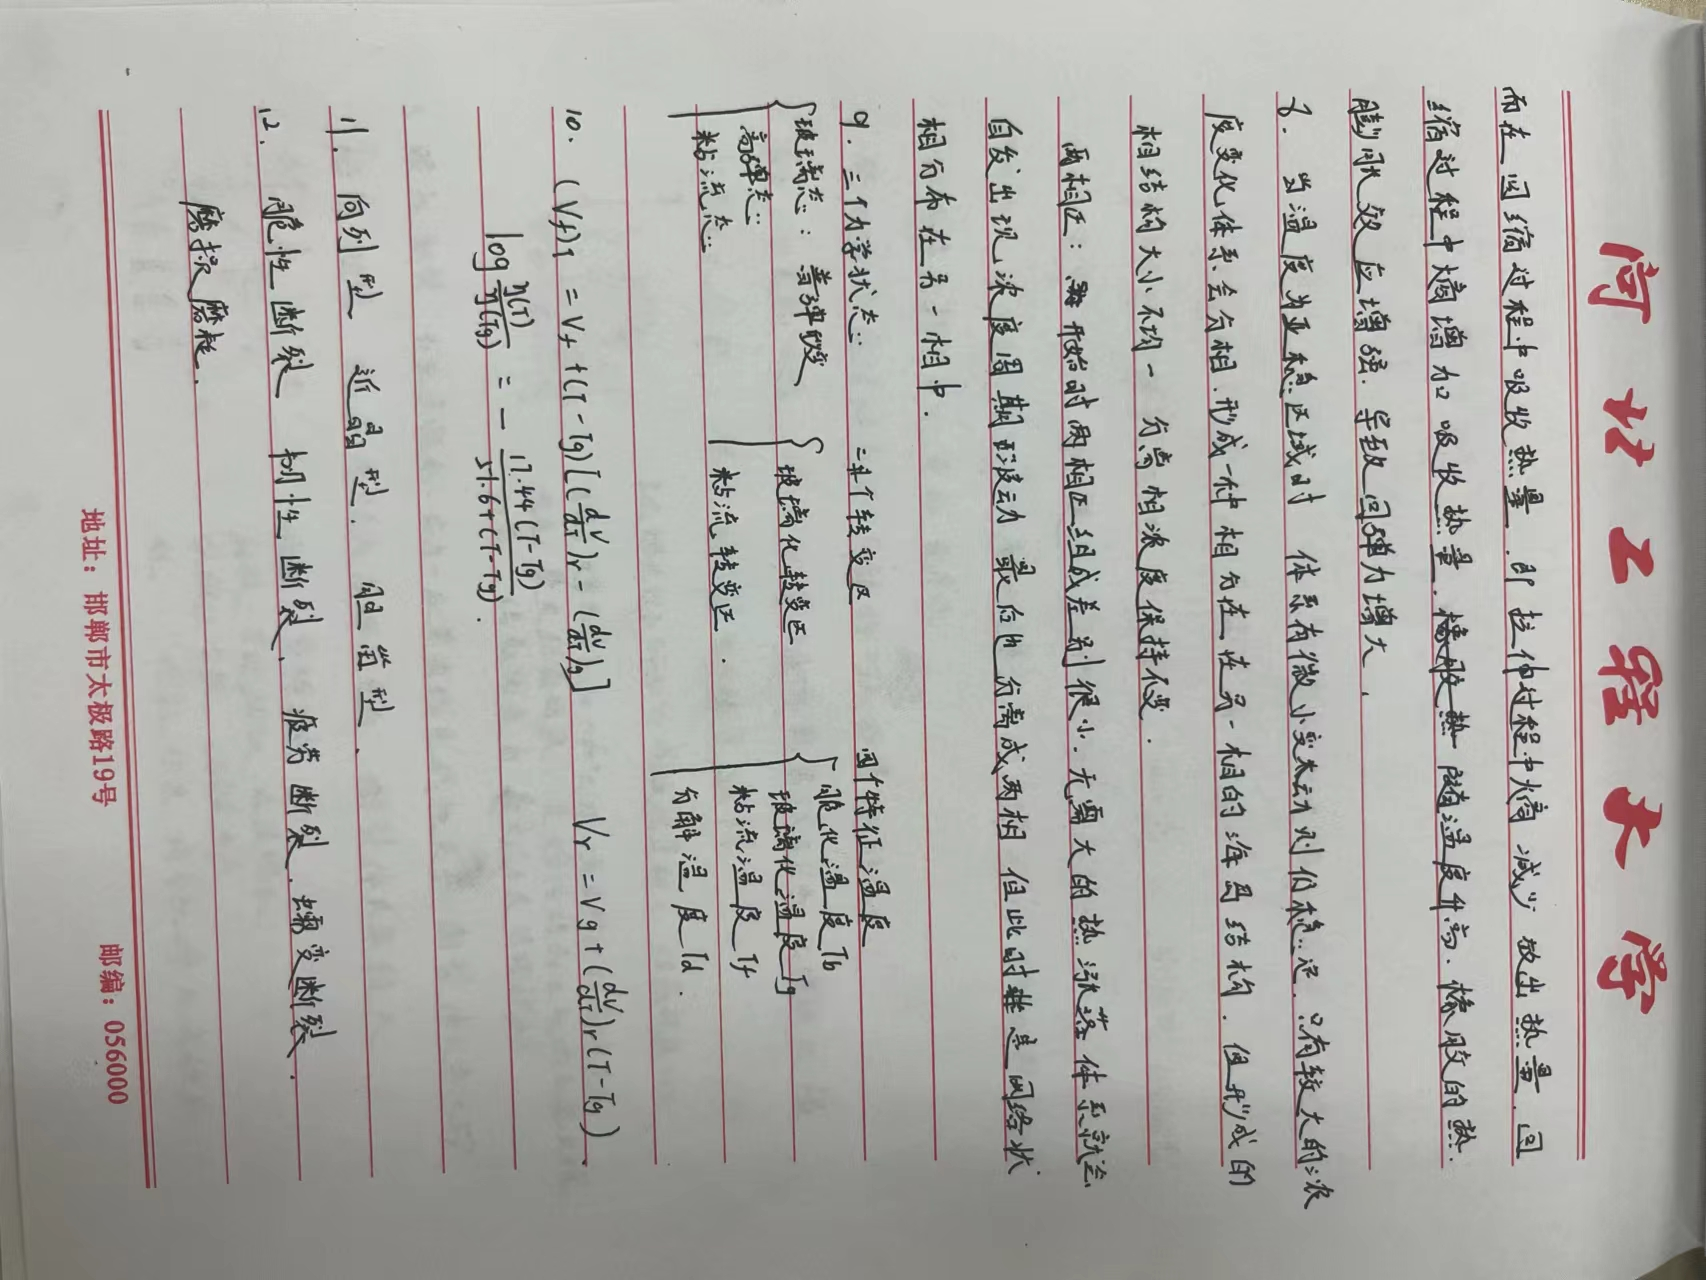 河北工程大学
而在回缩过程中吸收热量.即拉伸过程中熵减少放出热量.回
缩过程中熵增加吸收热量.橡胶热 随温度升高.橡胶的热
膨胀效应增强.导致回弹力增大.
8. 当温度为亚稳区域时 体系有微小变动则仍稳定.只有较大的浓
度变化体系会分相.形成一种相分在在另一相的海岛结构.但形成的
相结构大小不均一 分离相浓度保持不变.
两相区: 开始时两相区组成差别很小.无需大的热涨落体系就会
自发出现浓度周期形波动 最后也分离成两相 但此时往是网络状
相分布在另一相中.
9. 三个力学状态: 二个转变区 四个特征温度
玻璃态: 普弹形变 玻璃化转变区 脆化温度Tb
高弹态: 粘流转变区. 玻璃化温度Tg
粘流态: 粘流温度Tf
分解温度Td.
10. (Vf)T = Vf + (T-Tg)[(dV/dT)r - (dV/dT)g] Vr = Vg + (dV/dT)r(T-Tg)
log η(T)/η(Tg) = - 17.44(T-Tg)/51.6+(T-Tg).
11. 向列型 近晶型. 胆甾型.
12. 脆性断裂 韧性断裂. 疲劳断裂. 蠕变断裂.
磨损磨耗.
地址：邯郸市太极路19号 邮编：056000